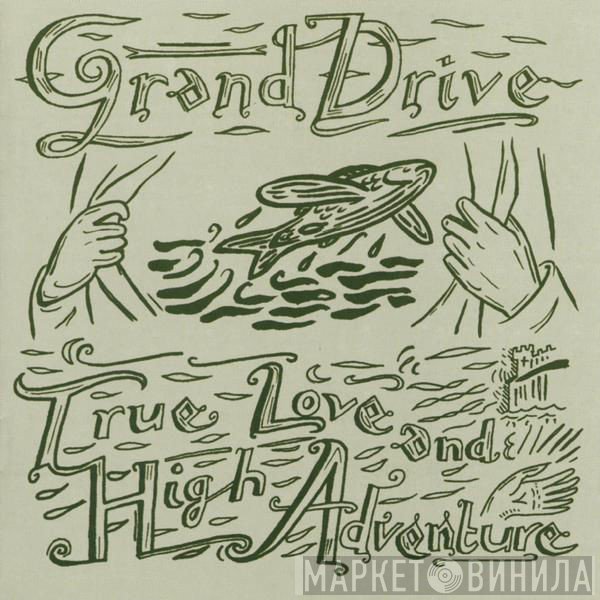 Grand Drive
True Love
and
High Adventure
МАРКЕТ ВИНИЛА